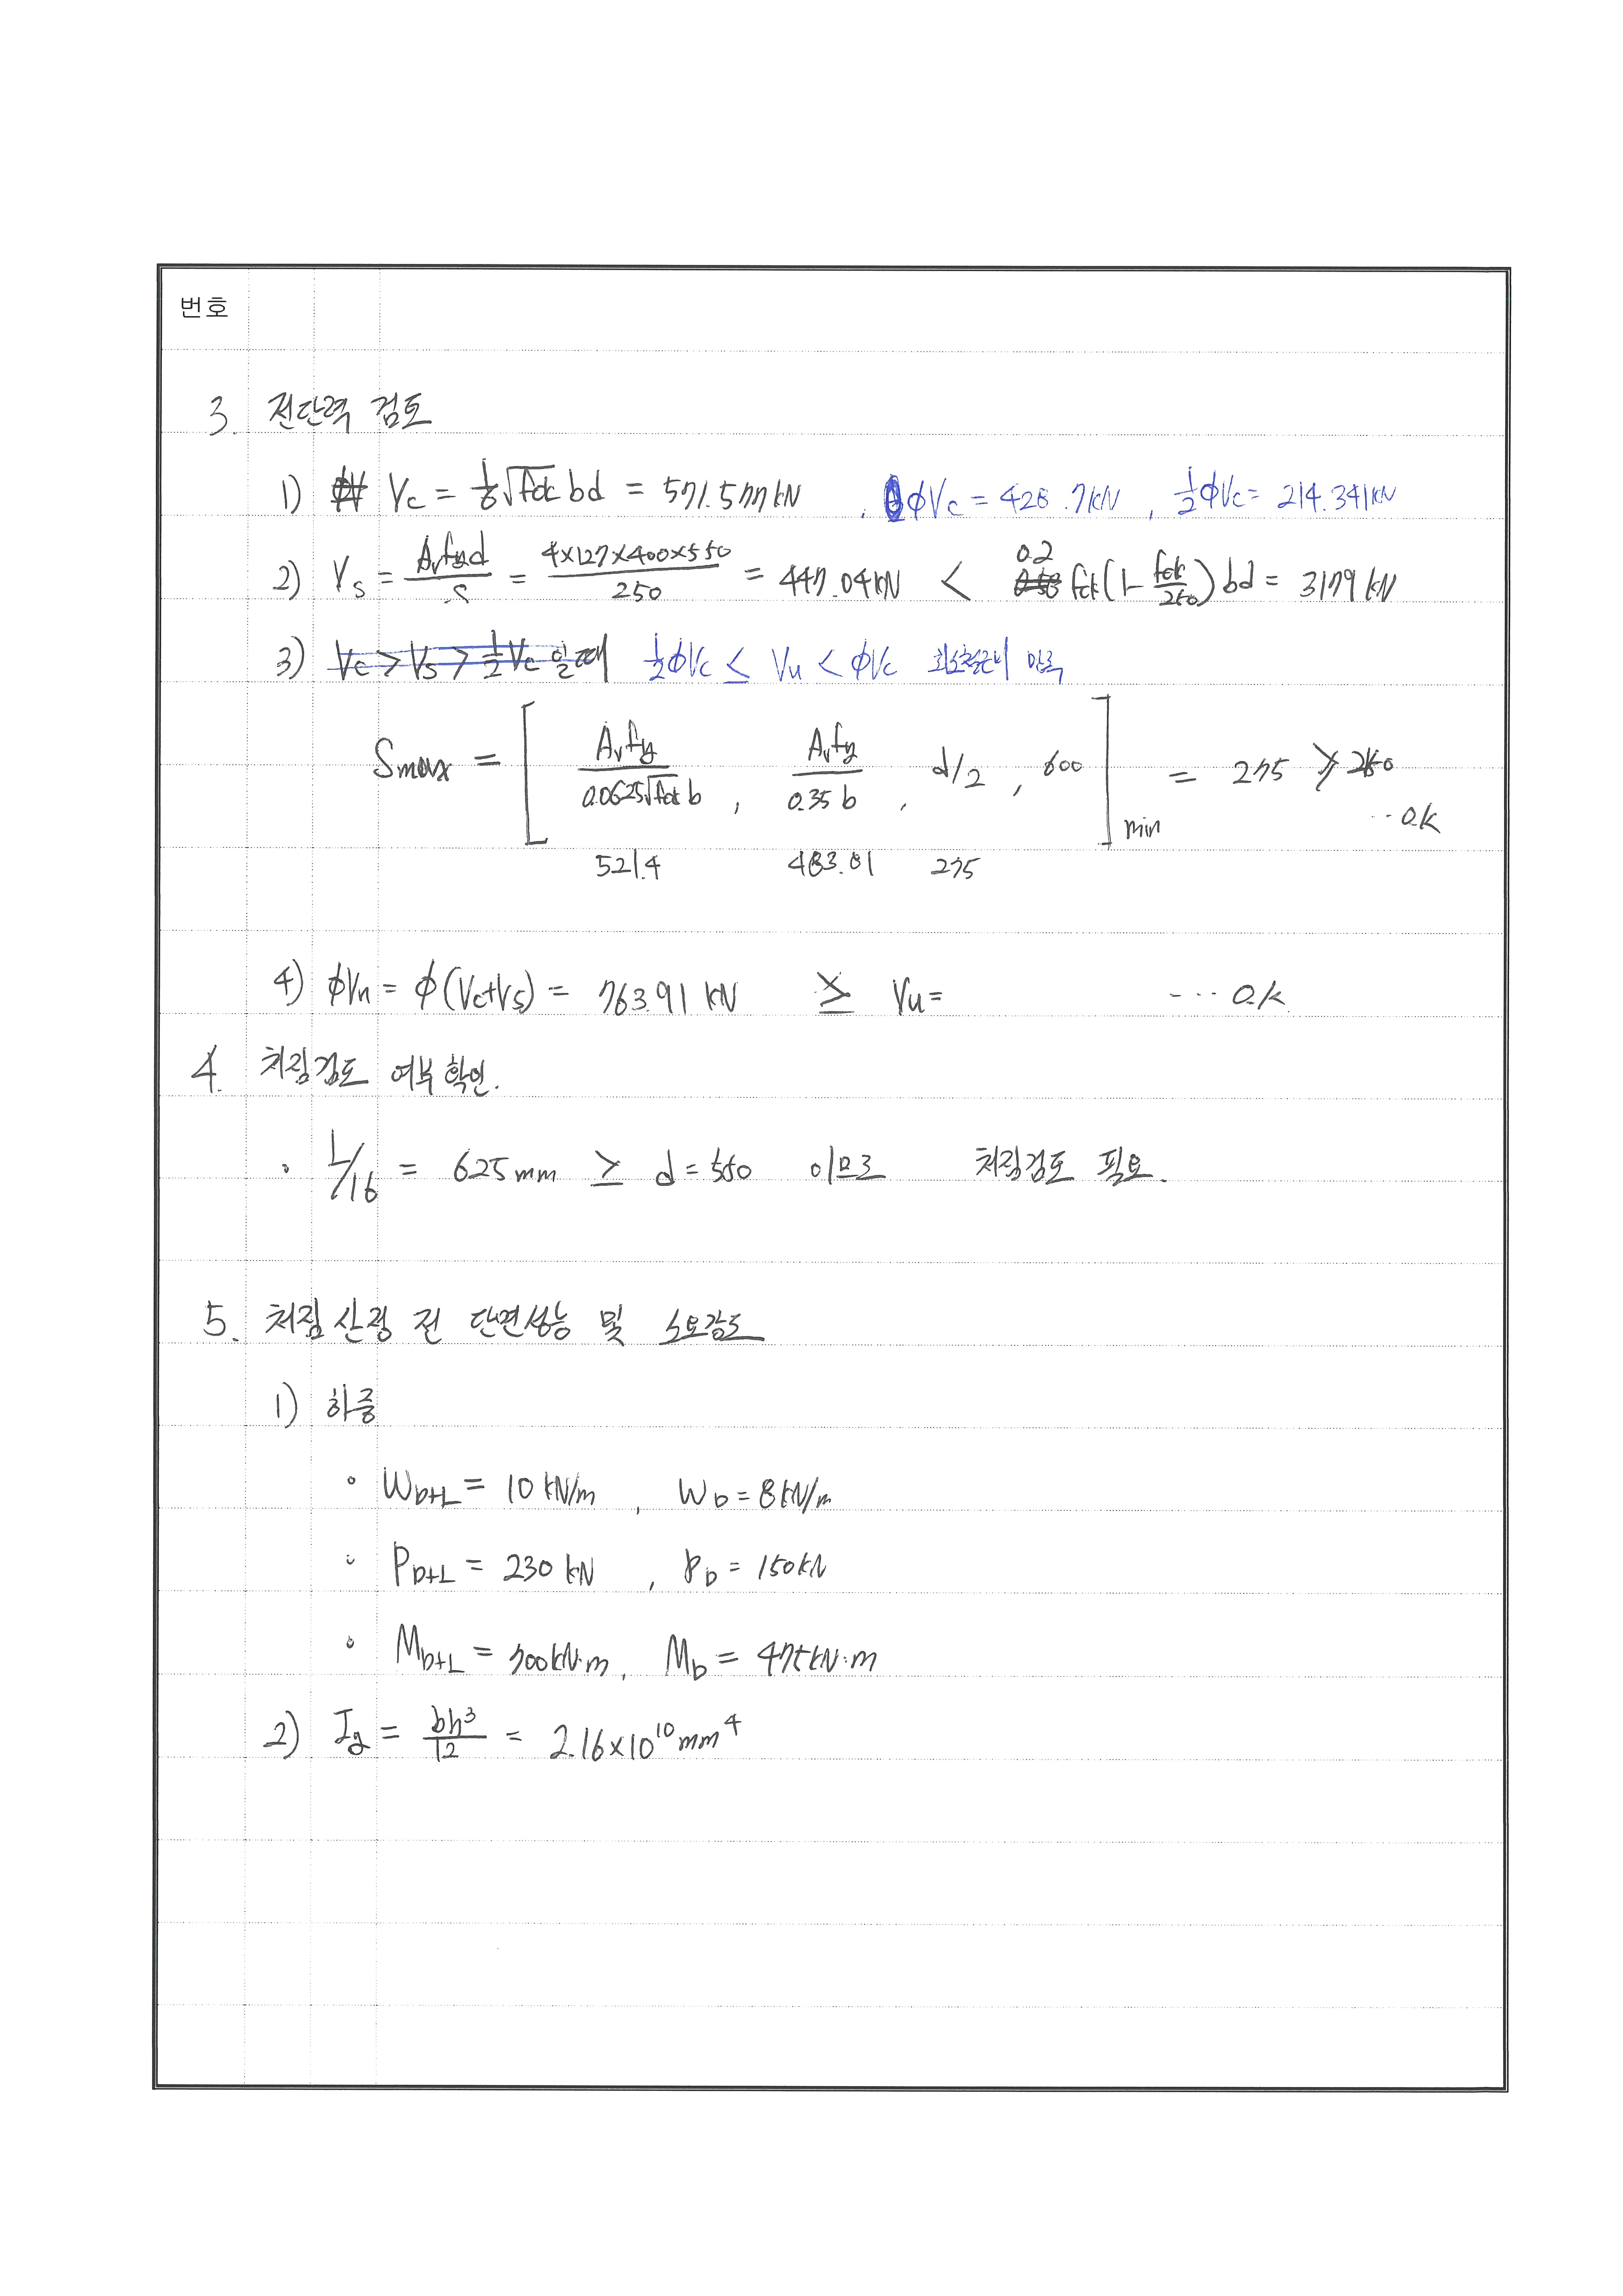 번호
3. 전단력 검토
1) Vc = 1/6 √fck bd = 571.577kN , φVc = 428.7kN , 1/2 φVc = 214.341kN
2) Vs = Av fy d / s = 4×127×400×550 / 250 = 447.04kN < 0.2 fck(1 - fck/250) bd = 3179 kN
3) Vc > Vs > 1/2 Vc 일때 1/2 φVc ≤ Vu < φVc 최소철근비 만족
Smax = [ Av fy / 0.0625√fck b , Av fy / 0.35 b , d/2 , 600 ] min = 275 > 250
··· O.K
521.4 483.81 275
4) φVn = φ(Vc+Vs) = 763.91 kN ≥ Vu = --·· O.K
4. 처짐검토 여부 확인.
· L/16 = 625mm ≥ d = 550 이므로 처짐검토 필요.
5. 처짐 산정 전 단면성능 및 소요강도
1) 하중
· WD+L = 10 kN/m , WD = 8kN/m
· PD+L = 230 kN , PD = 150kN
· MD+L = 700kN·m , MD = 475kN·m
2) Ig = bh³/12 = 2.16×10¹⁰mm⁴